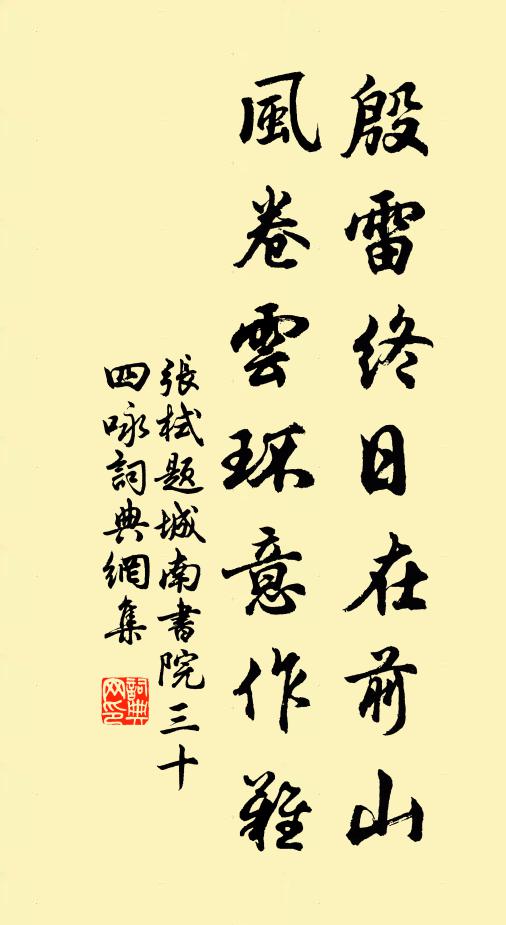 殷雷終日在前山
風卷雲环意作難
張栻題城南書院三十
四咏詞典網集
詞典网印